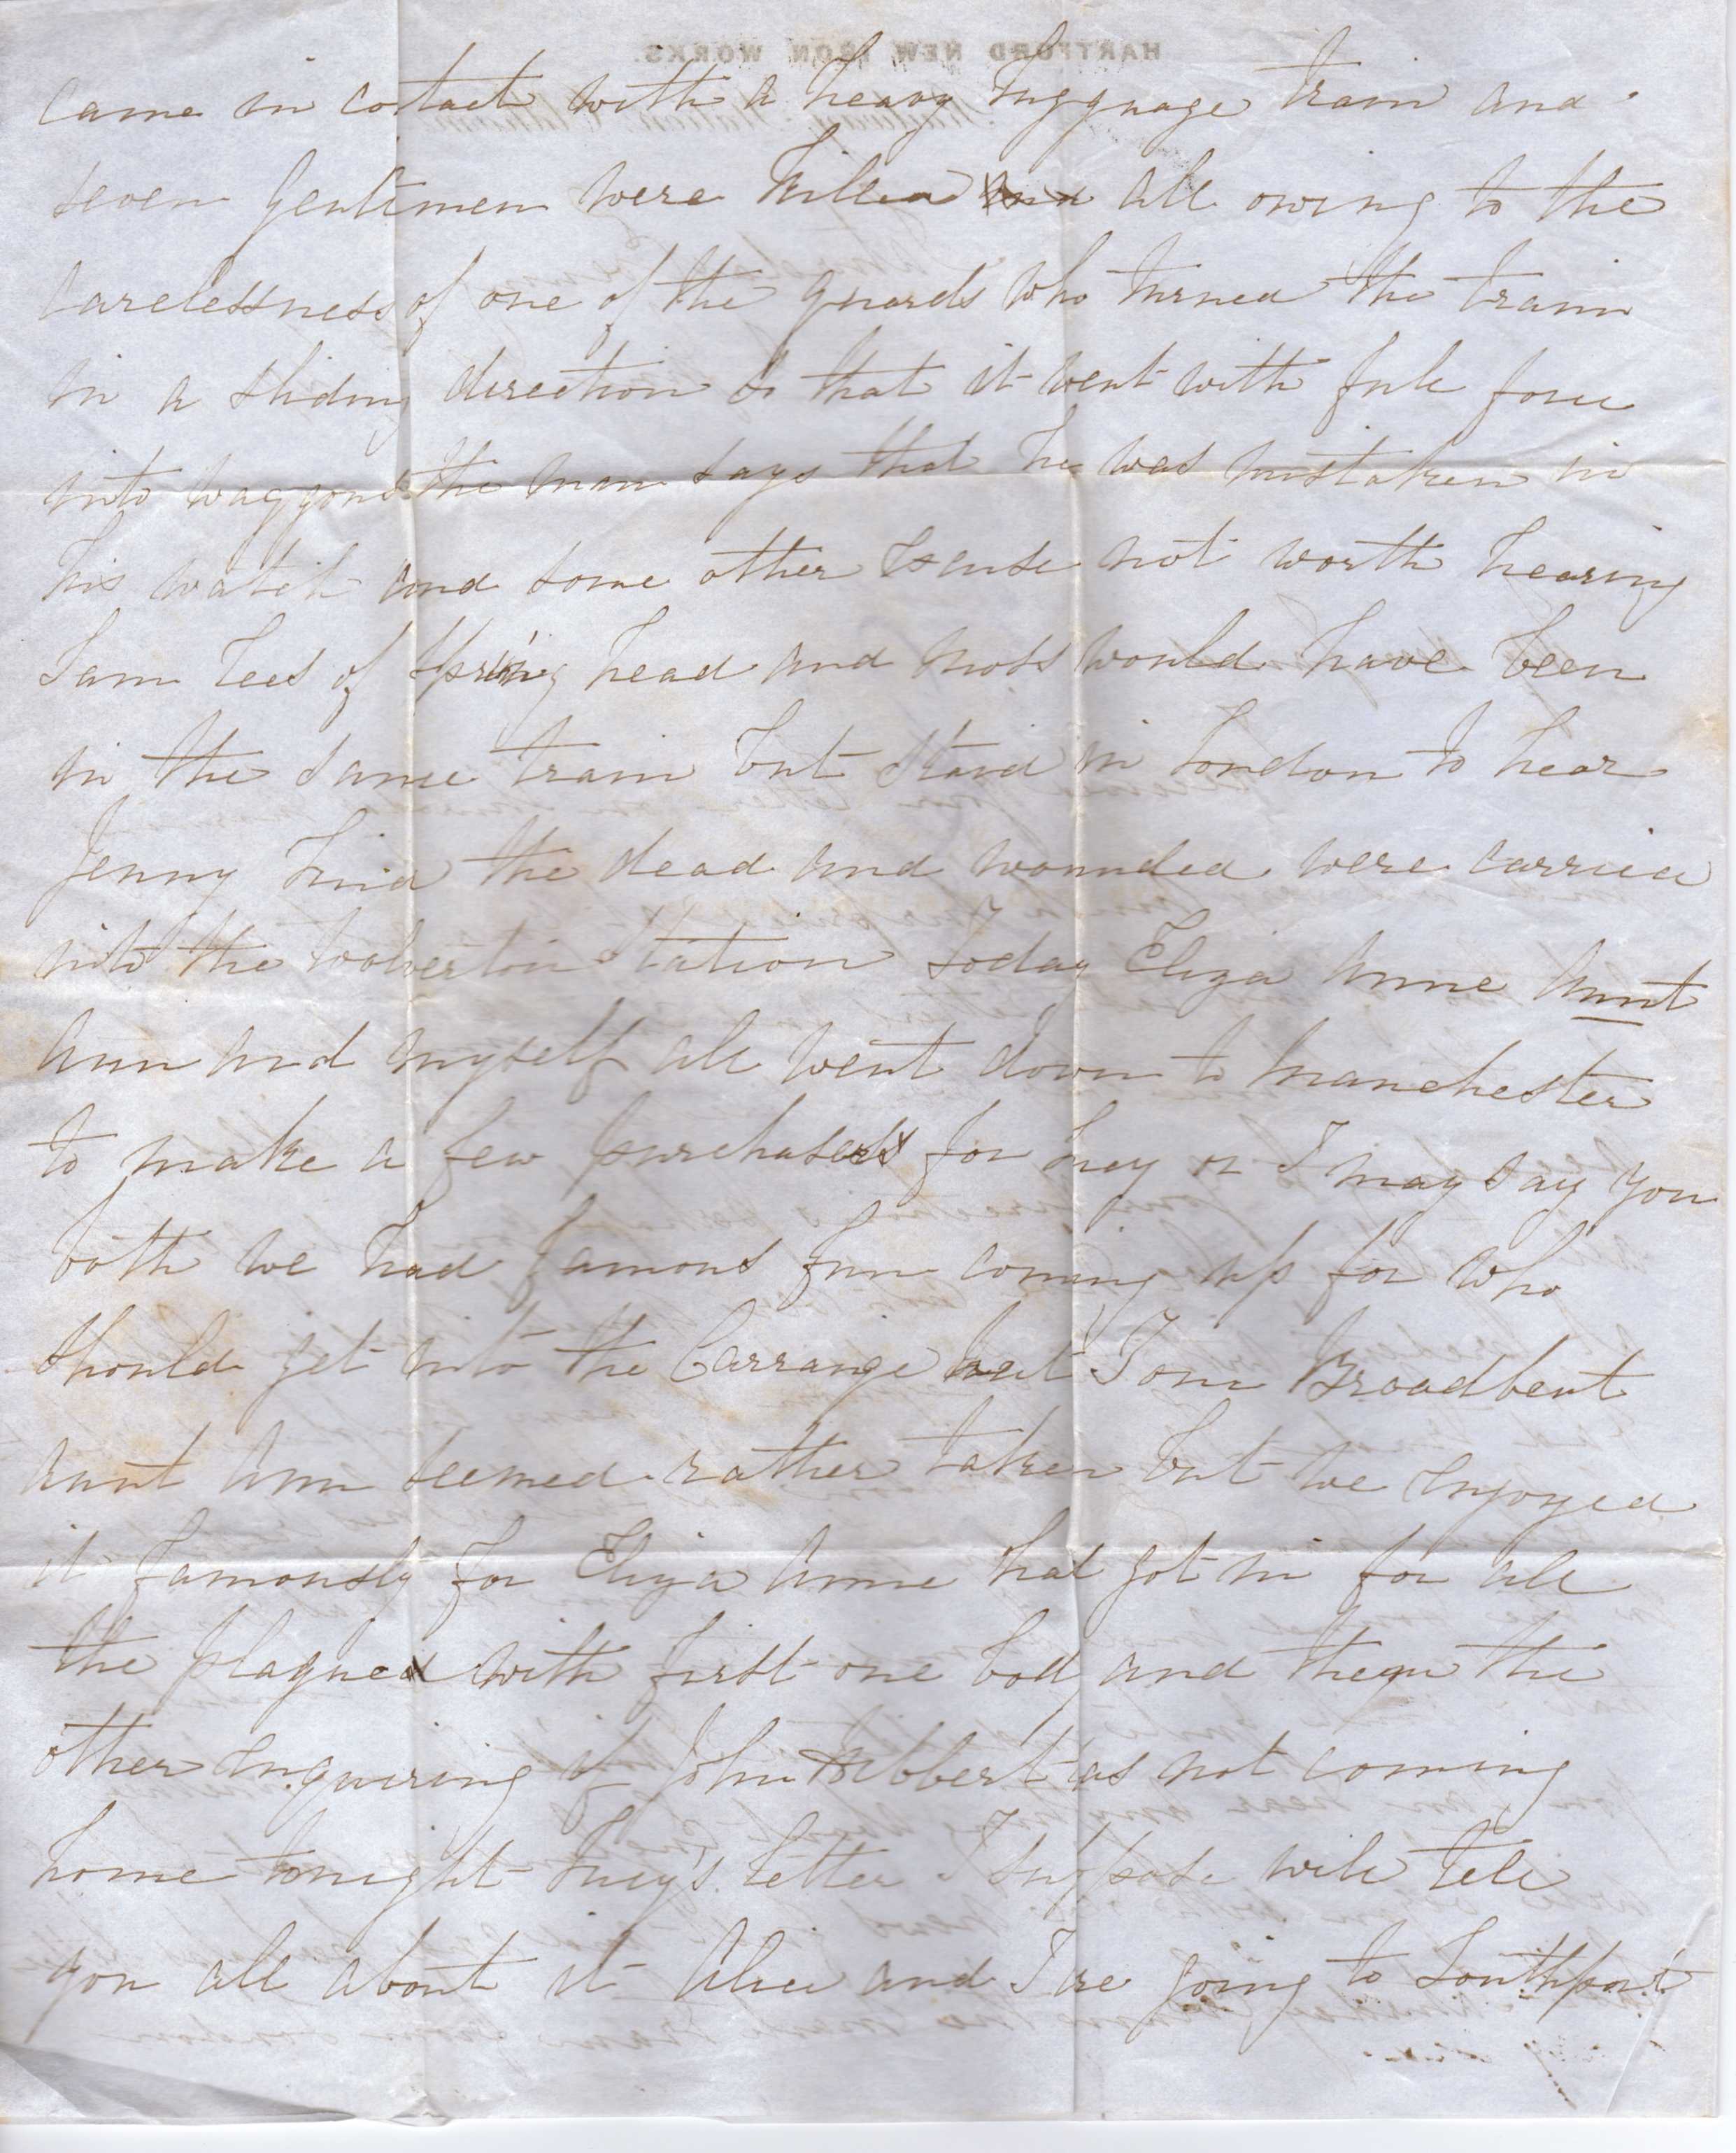 HARTFORD NEW IRON WORKS.
came in contact with a heavy lugguage train and
seven gentlemen were killed all owing to the
carelessness of one of the guards who turned the train
in a sliding direction so that it went with full force
into waggons the man says that he was mistaken in
his watch and some other excuse not worth hearing
Sam Lees of Spring head and Moss would have been
in the same train but staid in London to hear
Jenny Lind the dead and wounded were carried
into the Wolverton Station today Eliza Anne Aunt
Ann and myself all went down to Manchester
to make a few purchases for Lucy or I may say you
both we had famous fun coming up for who
should get into the Carraige but Tom Broadbent
Aunt Ann seemed rather taken but we enjoyed
it famously for Eliza Anne had got in for all
the plagued with first one body and then the
other enquiring if John Robbert was not coming
home tonight Lucy's letter I suppose will tell
you all about it Alice and I are going to Southport